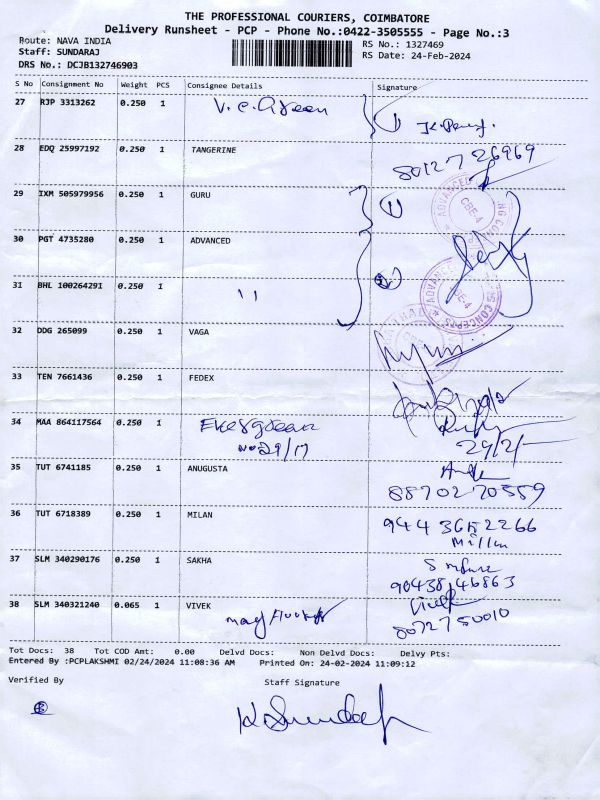 THE PROFESSIONAL COURIERS, COIMBATORE
Delivery Runsheet - PCP - Phone No.:0422-3505555 - Page No.:3
Route: NAVA INDIA
RS No.: 1327469
Staff: SUNDARAJ
RS Date: 24-Feb-2024
DRS No.: DCJB132746903
S No Consignment No Weight PCS Consignee Details Signature
27 RJP 3313262 0.250 1
28 EDQ 25997192 0.250 1 TANGERINE
80127 26969
29 IXM 505979956 0.250 1 GURU 1)
30 PGT 4735280 0.250 1 ADVANCED
31 BHL 100264291 0.250 1 " 2)
32 DDG 265099 0.250 1 VAGA
33 TEN 7661436 0.250 1 FEDEX
34 MAA 864117564 0.250 1 Evergreen
24/2/-
35 TUT 6741185 0.250 1 ANUGUSTA
88702 70559
36 TUT 6718389 0.250 1 MILAN
944 3652266
Millan
37 SLM 340290176 0.250 1 SAKHA
90438 46863
38 SLM 340321240 0.065 1 VIVEK Vivek
80727 50010
Tot Docs: 38 Tot COD Amt: 0.00 Delvd Docs: Non Delvd Docs: Delvy Pts:
Entered By :PCPLAKSHMI 02/24/2024 11:08:36 AM Printed On: 24-02-2024 11:09:12
Verified By Staff Signature
K. Sundar